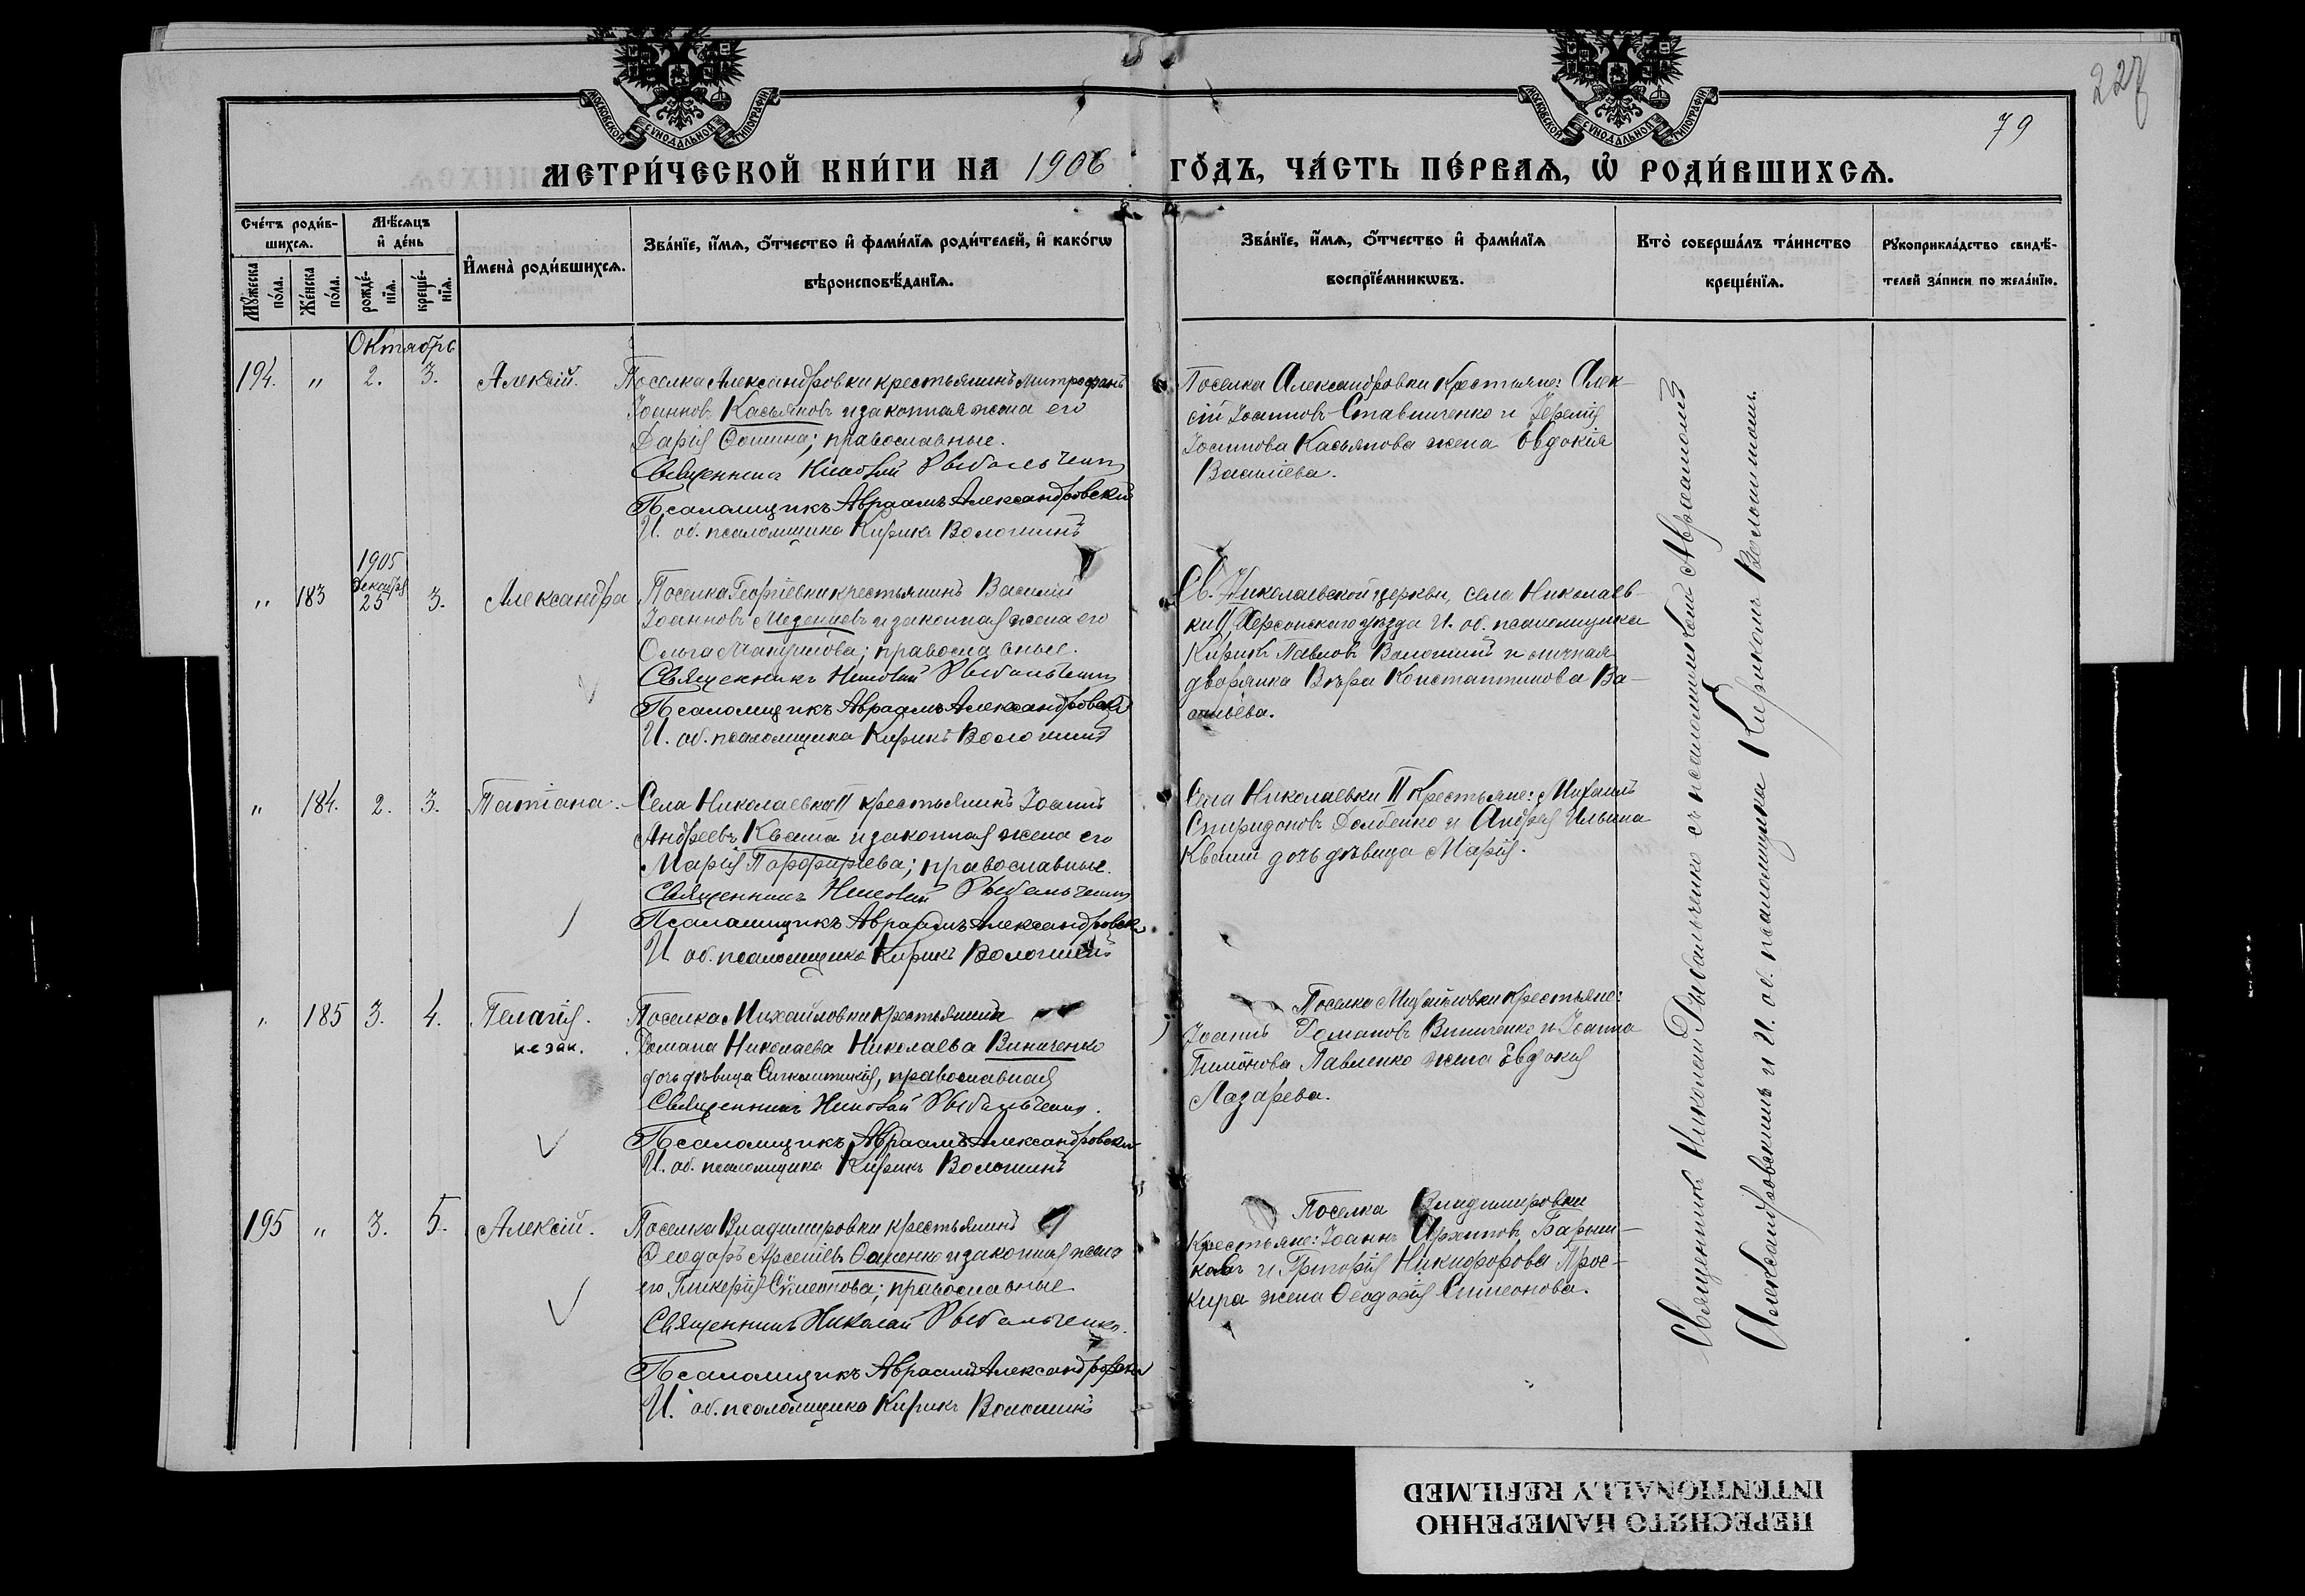 227
79
МОСКОВСКОЙ СѴНОДАЛЬНОЙ ТИПОГРАФІИ
МОСКОВСКОЙ СѴНОДАЛЬНОЙ ТИПОГРАФІИ
МЕТРИ́ЧЕСКОЙ КНИ́ГИ НА 1906 ГО́ДЪ, ЧА́СТЬ ПЕ́РВАѦ, Ѽ РОДИ́ВШИХСѦ.
Сче́тъ роди́в-
шихсѧ.
Мꙋ́жеска по́ла.
Же́нска по́ла.
Мѣ́сѧцъ
и҆ де́нь
рожде́-
нїѧ.
креще́-
нїѧ.
И҆мена̀ роди́вшихсѧ.
Зва́нїе, и҆́мѧ, ѻ҆́тчество и҆ фами́лїѧ роди́телей, и҆ како́гѡ
вѣроисповѣ́данїѧ.
Зва́нїе, и҆́мѧ, ѻ҆́тчество и҆ фами́лїѧ
воспрїе́мникѡвъ.
Кто̀ соверша́лъ та́инство
креще́нїѧ.
Рꙋкоприкла́дство свидѣ́-
телей за́писи по жела́нїю.
Октябрь
194. " 2. 3. Алексій.
Поселка Александровки крестьянинъ Митрофанъ
Іоанновъ Касьяновъ и законная жена его
Дарія Ѳомина; православные.
Священникъ Николай Рыбальченко
Псаломщикъ Авраамъ Александровскій
И. об. псаломщика Кирикъ Волошинъ
Поселка Александровки крестьяне: Алек-
сій Іоанновъ Ставниченко и Іеремія
Іоаннова Касьянова жена Евдокія
Василіева.
1905
Декабря
" 183 25 3. Александра
Поселка Георгіевки крестьянинъ Василій
Іоанновъ и законная жена его
Ольга; православные.
Священникъ Николай Рыбальченко
Псаломщикъ Авраамъ Александровскій
И. об. псаломщика Кирикъ Волошинъ
Св. Николаевской церкви, села Николаев-
ки II, Херсонскаго уѣзда И. об. псаломщика
Кирикъ Павловъ Волошинъ и личная
дворянка Вѣра Константинова Ва-
сильева.
" 184. 2. 3. Татіана.
Села Николаевки II крестьянинъ Іоаннъ
Андреевъ Кваша и законная жена его
Марія Порфиріева; православные.
Священникъ Николай Рыбальченко
Псаломщикъ Авраамъ Александровскій
И. об. псаломщика Кирикъ Волошинъ
Села Николаевки II крестьяне: Михаилъ
Спиридоновъ Долбенко и Андрея Ильина
Кваши дочь дѣвица Марія.
" 185 3. 4. Пелагія.
незак.
Поселка Михайловки крестьянина
Романа Николаева Николаева Виниченко
дочь дѣвица Синклитикія, православная
Священникъ Николай Рыбальченко.
Псаломщикъ Авраамъ Александровскій
И. об. псаломщика Кирикъ Волошинъ
Поселка Михайловки крестьяне:
Іоаннъ Романовъ Виниченко и Іоанна
Павленко жена Евдокія
Лазарева.
195 " 3. 5. Алексій.
Поселка Владимировки крестьянинъ
Ѳеодоръ Арсеніевъ и законная жена
его Гликерія Симеонова; православные
Священникъ Николай Рыбальченко.
Псаломщикъ Авраамъ Александровскій
И. об. псаломщика Кирикъ Волошинъ
Поселка Владимировки
крестьяне: Іоаннъ Архиповъ Барыш-
ковъ и Григорія Никифорова Прос-
кура жена Ѳеодосія Симеонова.
Священникъ Николай Рыбальченко съ псаломщикомъ Авраамомъ
Александровскимъ и И. об. псаломщика Кирикомъ Волошинымъ.
ПЕРЕСНЯТО НАМЕРЕННО
INTENTIONALLY REFILMED